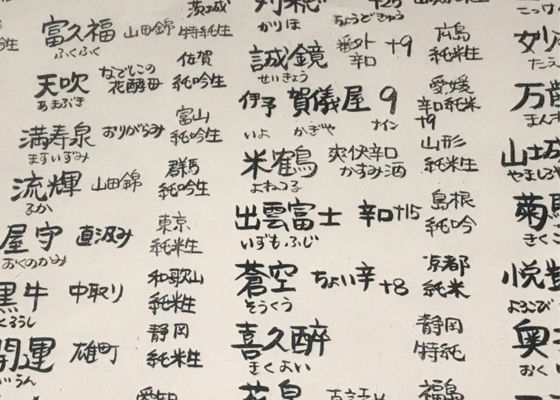 茨城
富久福 山田錦 特純生
ふくふく
天吹 なでしこの花酵母 佐賀 純吟生
あまぶき
満寿泉 おりがらみ 富山 純吟生
ますいずみ
流輝 山田錦 群馬 純吟生
るか
屋守 直汲み 東京 純米生
おくのかみ
黒牛 中取り 和歌山 純米生
くろうし
開運 雄町 静岡 純米生
いうん
愛知
かりほ ちょうどきゅう
誠鏡 番外 辛口 +9 広島 純米生
せいきょう
伊予 賀儀屋 9 愛媛 辛口純米 +9
いよ かぎや ナイン
米鶴 爽快辛口 かすみ酒 山形 純米生
よねつる
出雲富士 辛口+15 島根 純吟
いずもふじ
蒼空 ちょい辛+8 京都 純米
そうくう
喜久醉 静岡 特純
きくよい
福島
こっけ
たえ
万
まんさ
山城
やましろ
菊
きく
悦
よろこび
奥
おく